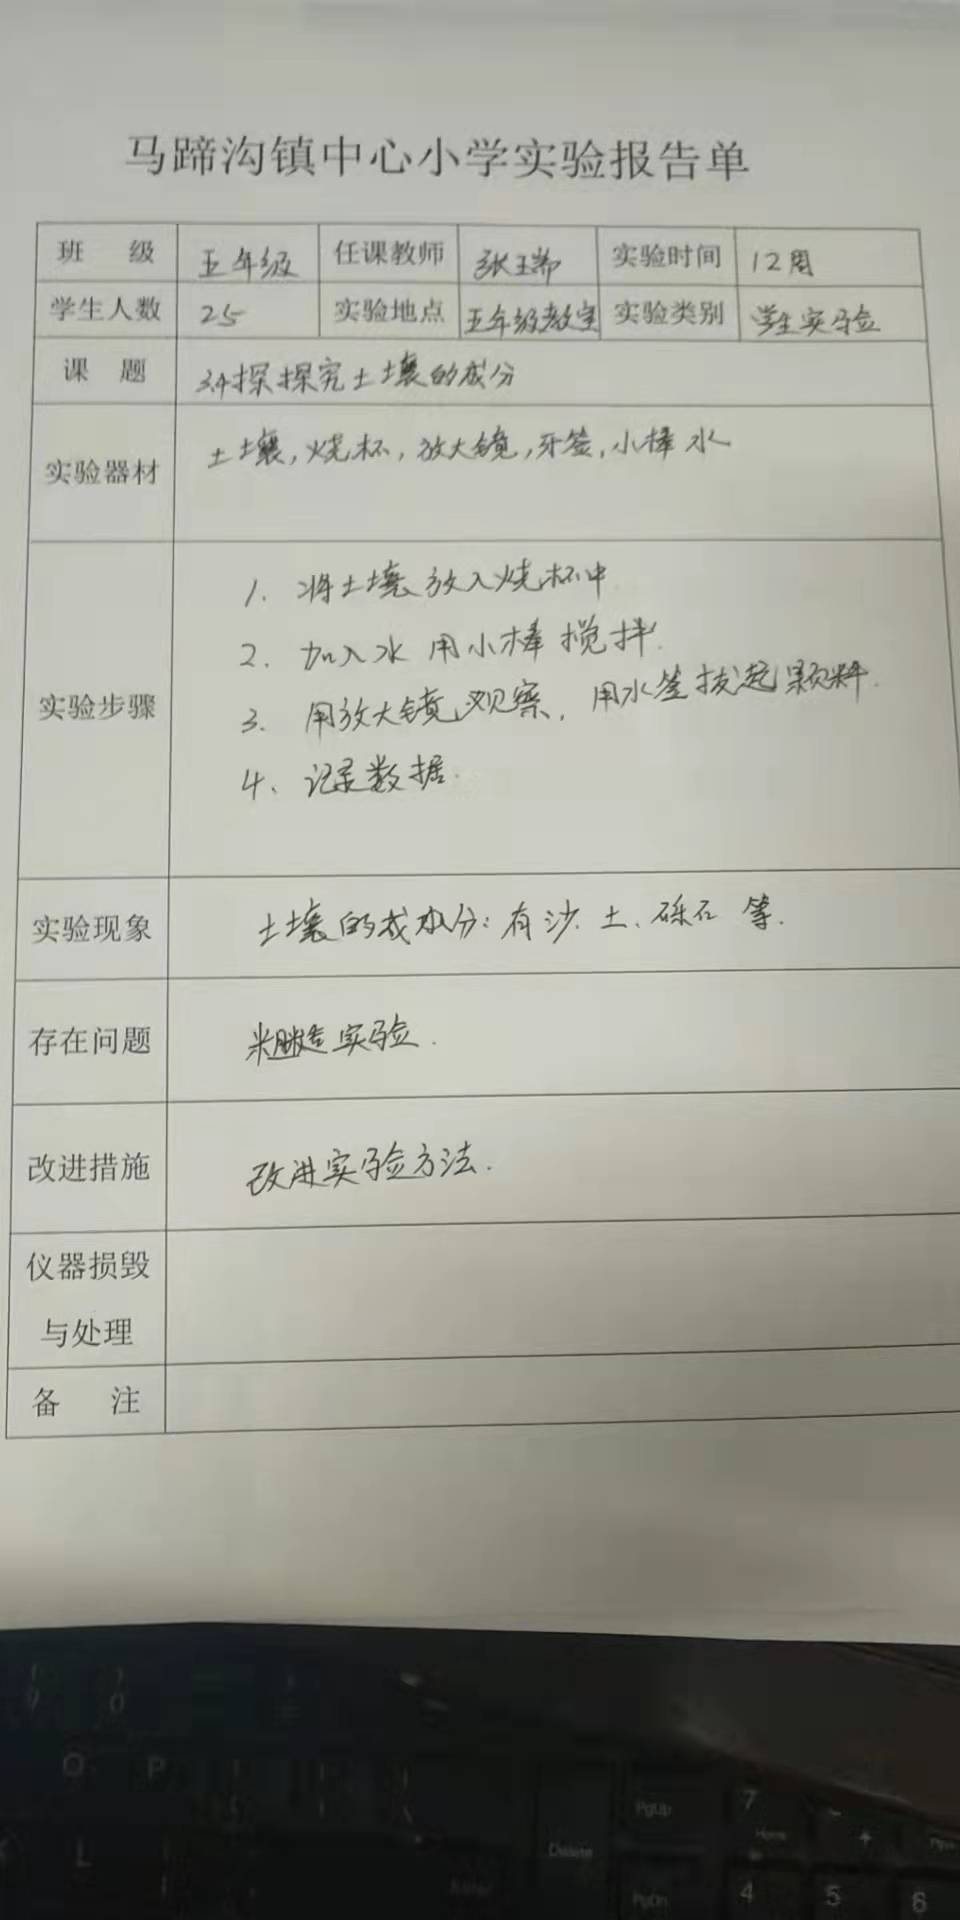 马蹄沟镇中心小学实验报告单
班 级 五年级 任课教师 张 实验时间 12周
学生人数 25 实验地点 五年级教室 实验类别 学生实验
课 题 探究土壤的成分
实验器材 土壤,烧杯,放大镜,牙签,小棒 水
实验步骤
1. 将土壤放入烧杯中
2. 加入水 用小棒搅拌.
3. 用放大镜观察, 用水签拔起颗料.
4. 记录数据.
实验现象 土壤的成分: 有沙、土、砾石 等.
存在问题 实验.
改进措施 改进实验方法.
仪器损毁
与处理
备 注
O P
L
Delete
PgUp
PgDn
7
Home
4 5 6